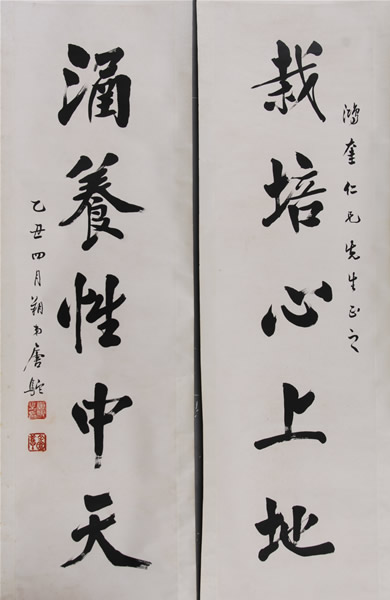 鴻奎仁兄先生正之
栽培心上地
涵養性中天
乙丑四月朔書唐駝